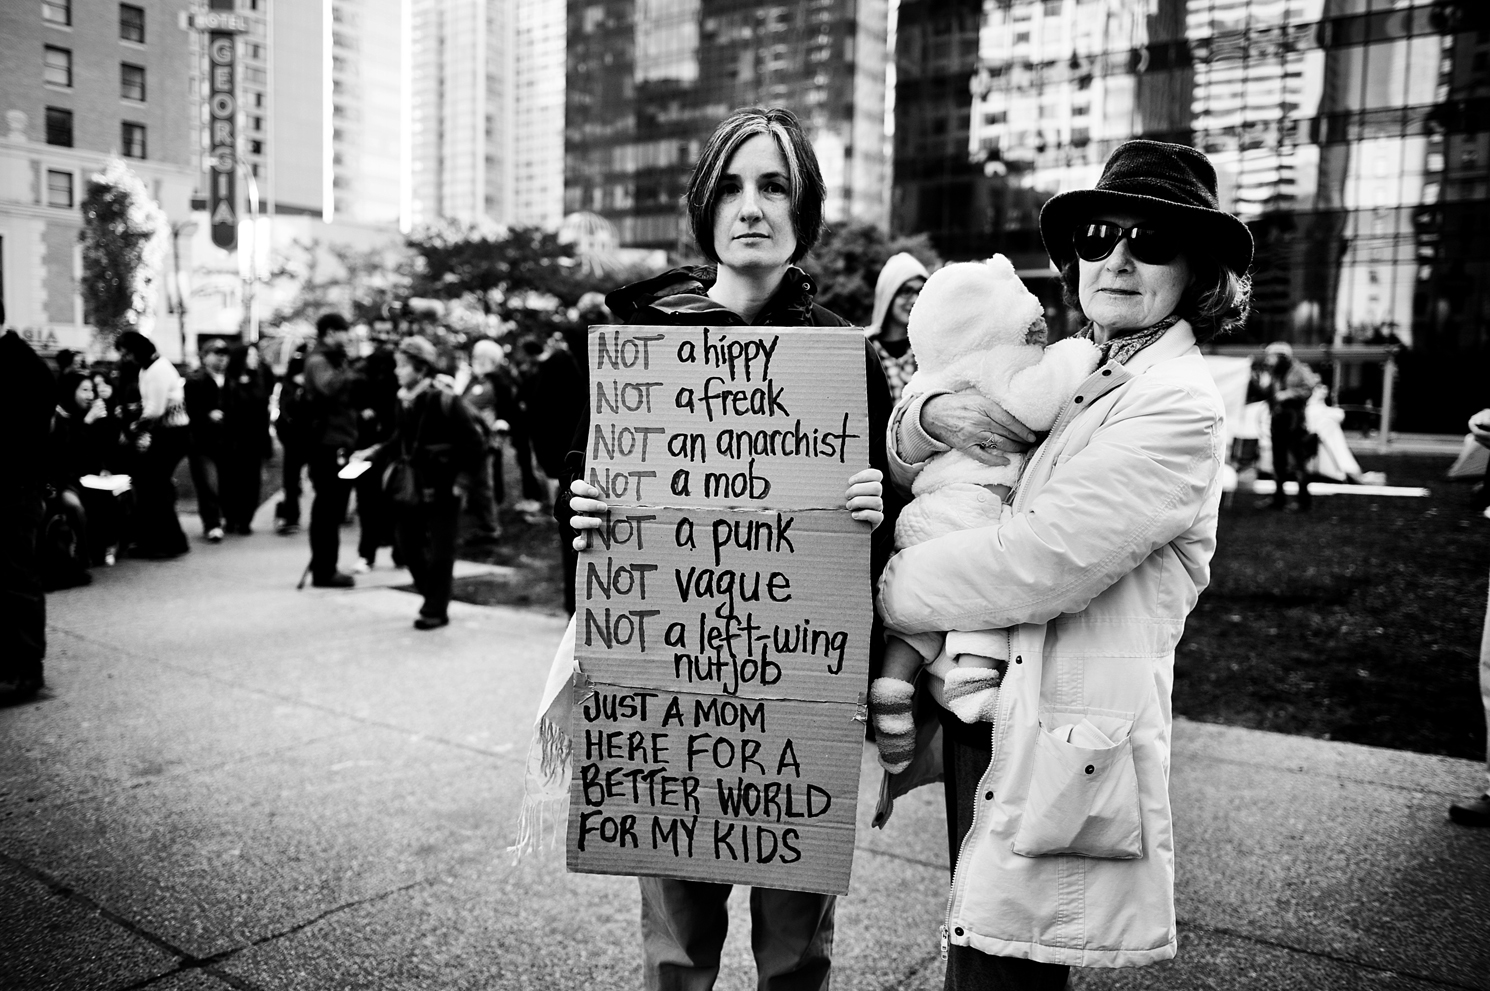 HOTEL
GEORGIA
NOT a hippy
NOT a freak
NOT an anarchist
NOT a mob
NOT a punk
NOT vague
NOT a left-wing
nutjob
JUST A MOM
HERE FOR A
BETTER WORLD
FOR MY KIDS